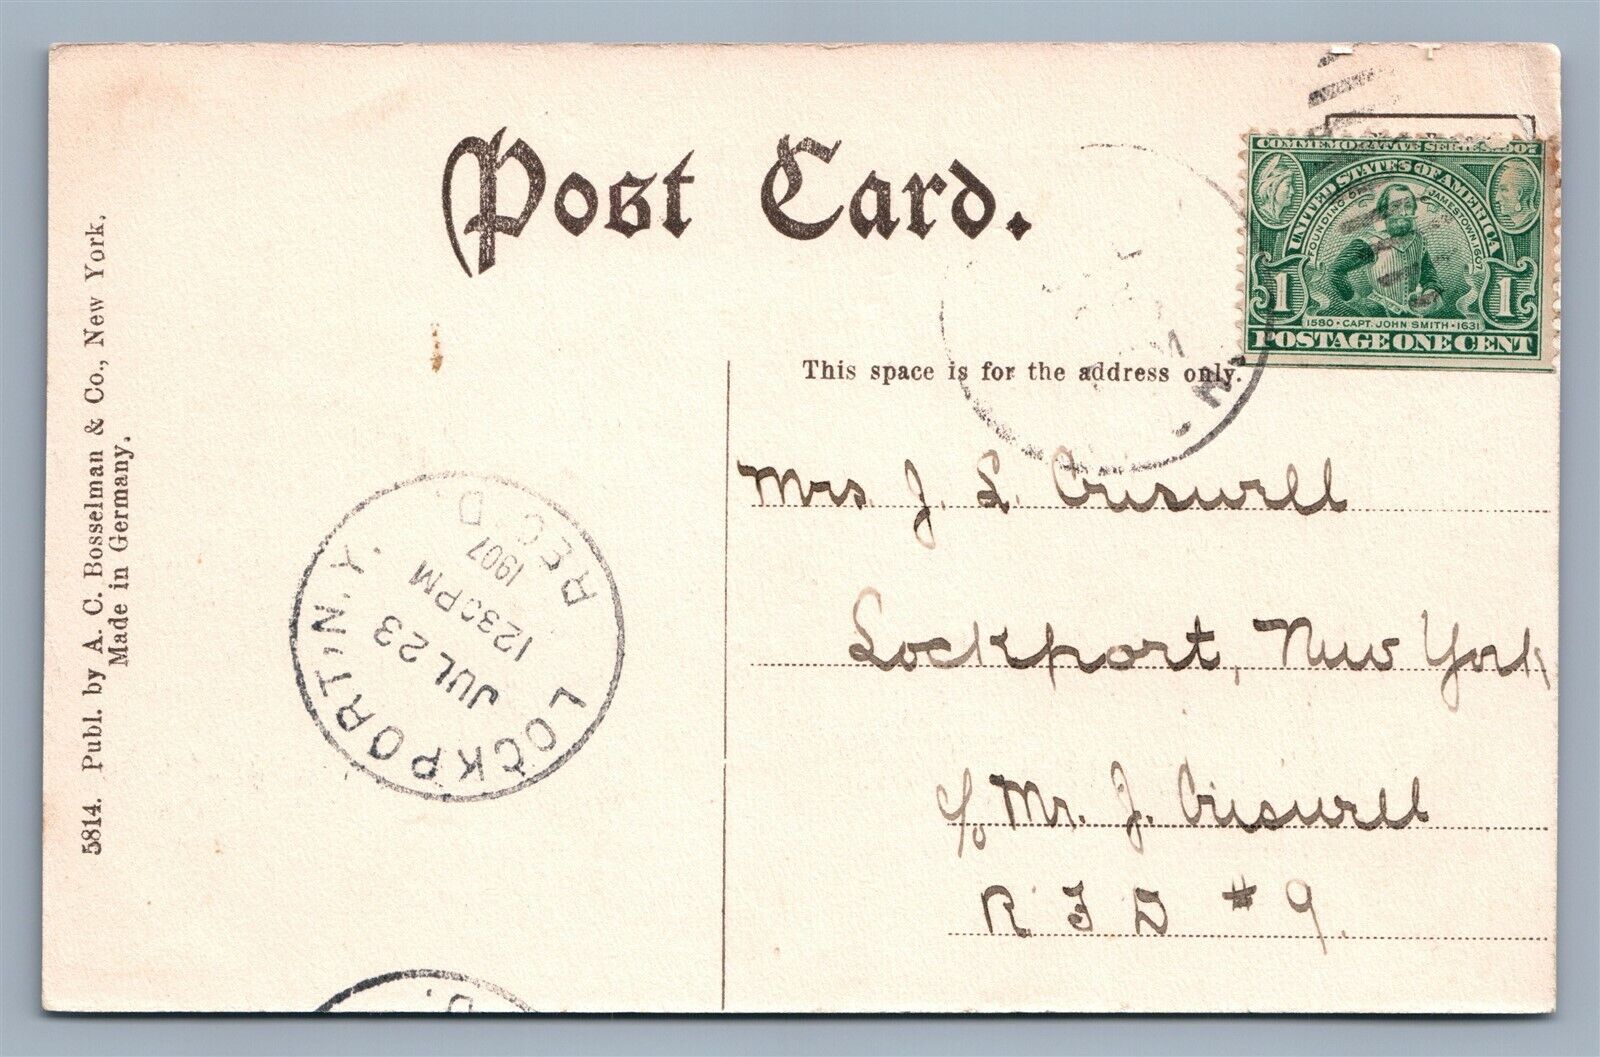 Post Card.
COMMEMORATIVE SERIES 1907
UNITED STATES OF AMERICA
FOUNDING OF JAMESTOWN, 1607
1 1
1580 · CAPT. JOHN SMITH · 1631
POSTAGE ONE CENT
This space is for the address only.
Mrs. J. L. Criswell
Lockport, New York
c/o Mr. J. Criswell
R F D # 9.
LOCKPORT, N.Y.
JUL 23
1230PM
1907
REC'D.
D.
5814. Publ. by A. C. Bosselman & Co., New York.
Made in Germany.